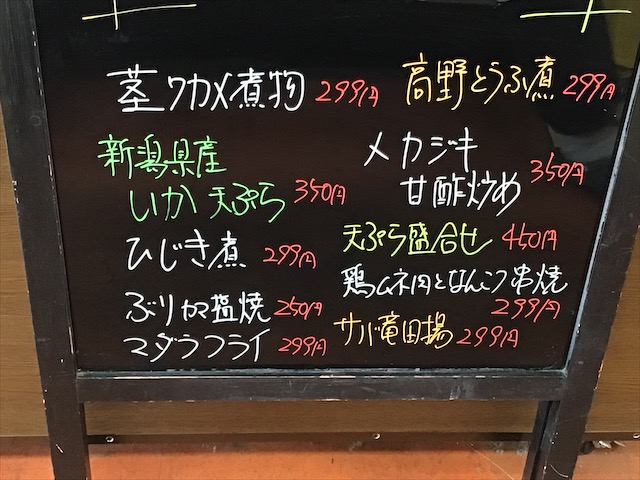 茎ワカメ煮物 299円
高野とうふ煮 299円
新潟県産
いか天ぷら 350円
メカジキ
甘酢炒め 350円
ひじき煮 299円
天ぷら盛合せ 450円
ぶりカマ塩焼 250円
鶏ムネ肉となんこつ串焼
299円
マダラフライ 299円
サバ竜田揚 299円